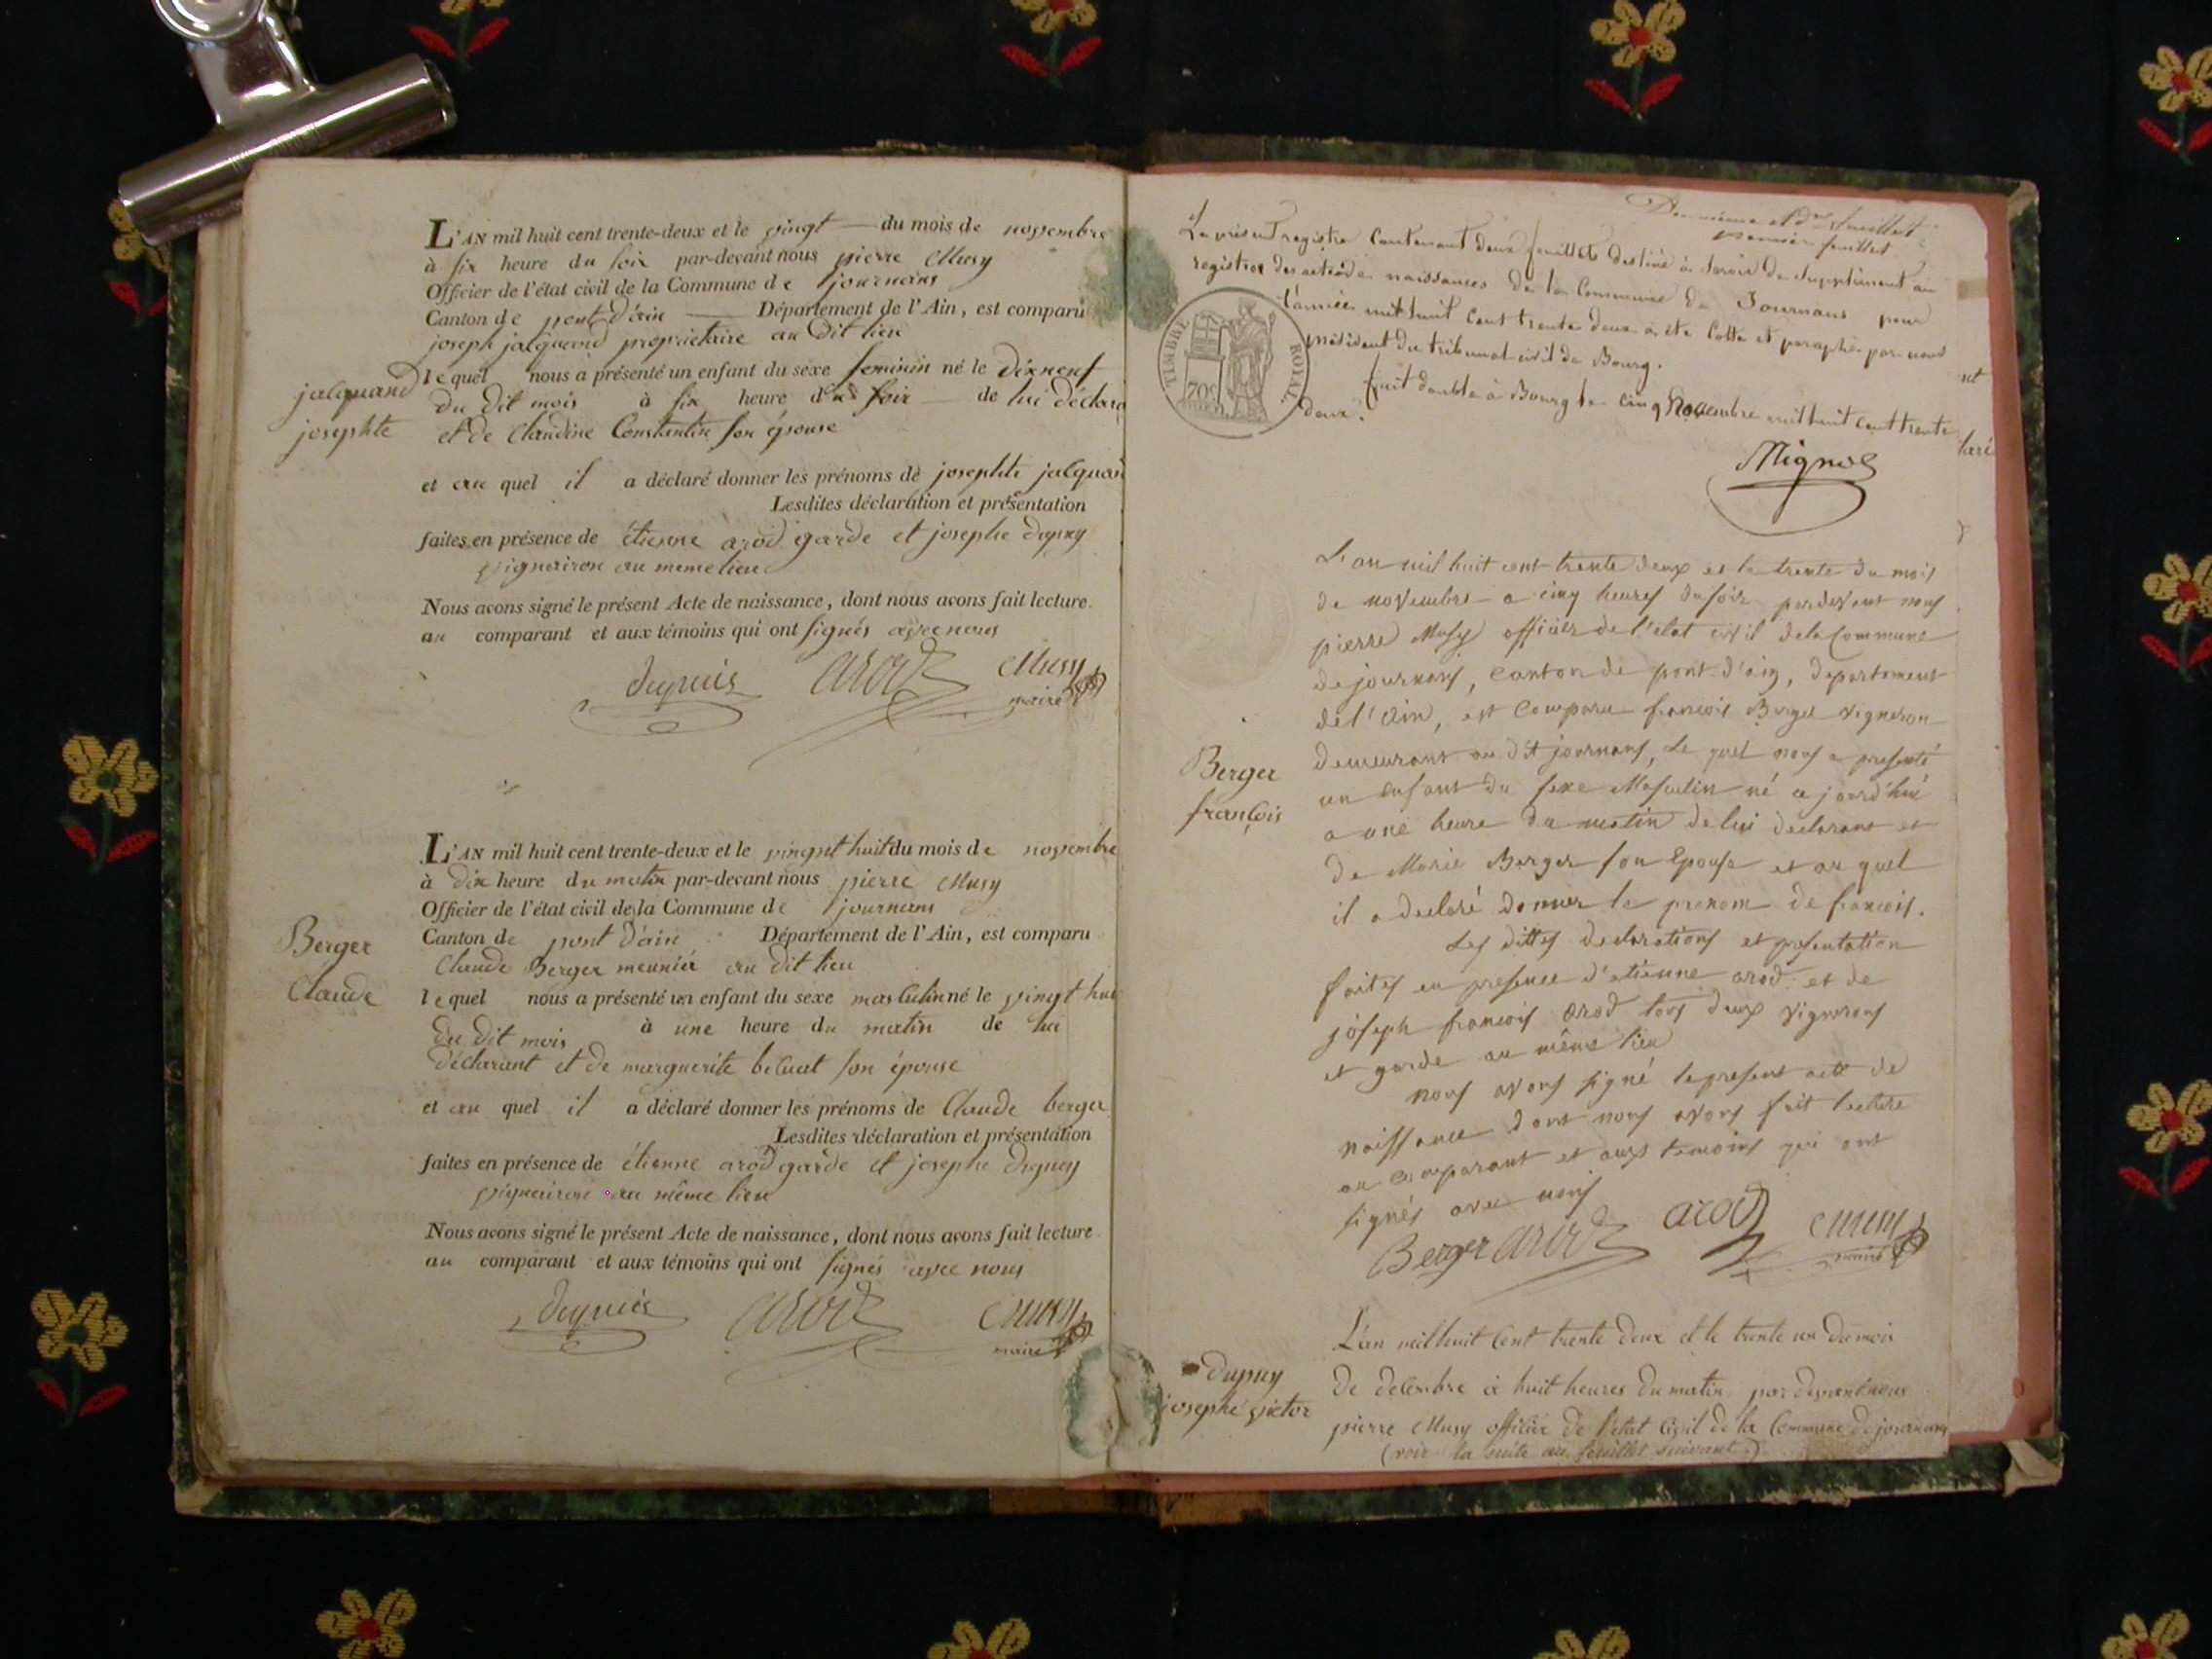 L'AN mil huit cent trente-deux et le vingt du mois de novembre
à six heure du soir par-devant nous pierre Musy
Officier de l'état civil de la Commune de journans
Canton de pont d'ain Département de l'Ain, est comparu
joseph jacquand propriétaire au Dit lieu
jalquand
josephte
lequel nous a présenté un enfant du sexe feminin né le Dixneuf
Du Dit mois à six heure du soir de lui déclara
et de Claudine Constantin son épouse
et au quel il a déclaré donner les prénoms de josephte jalquan
Lesdites déclaration et présentation
faites en présence de étienne arod garde et josephe Dupuy
vigneiron au meme lieu
Nous avons signé le présent Acte de naissance, dont nous avons fait lecture
au comparant et aux témoins qui ont signés avec nous
dupuis arod Musy
maire
L'AN mil huit cent trente-deux et le vingnt huit du mois de novembre
à Dix heure du matin par-devant nous pierre Musy
Officier de l'état civil de la Commune de journans
Canton de pont d'ain Département de l'Ain, est comparu
Claude Berger meunier au dit lieu
Berger
Claude
lequel nous a présenté un enfant du sexe masculin né le vingt hui
du dit mois à une heure du matin de lui
déclarant et de marguerite beluat son épouse
et au quel il a déclaré donner les prénoms de Claude berger
Lesdites déclaration et présentation
faites en présence de étienne arod garde et josephe Dupuy
vigneiron au même lieu
Nous avons signé le présent Acte de naissance, dont nous avons fait lecture
au comparant et aux témoins qui ont signés avec nous
dupuis arod Musy
maire
feuillet
premier feuillet
Le présent registre Contenant deux feuillets destiné à servir de Supplément au
registre des actes de naissances de la Commune de Journans pour
l'année mil huit cent trente deux a été Cotté et paraphé par nous
président du tribunal civil de Bourg.
fait double à Bourg le cinq Novembre mil huit cent trente
deux.
TIMBRE ROYAL
70c
nt
laré
Mignot
L'an mil huit cent trente deux et le trente du mois
de novembre a cinq heures du soir pardevant nous
pierre Musy officier de l'état civil dela Commune
de journans, canton de pont d'ain, departement
de l'Ain, est Comparu francois Berger vigneron
demeurant au dit journans, Le quel nous a presenté
un enfant du sexe Masculin né ce jourd'hui
a une heure du matin de lui declarant et
de Marie Berger son Epouse et au quel
il a declaré donner le prenom de francois.
Berger
françois
Les dittes declarations et presentation
faites en presence d'etienne arod et de
joseph francois arod tous deux vignerons
et garde au même lieu
nous avons signé le present acte de
naissance dont nous avons fait lecture
au comparant et aux temoins qui ont
signés avec nous
Berger arod arod Musy
maire
L'an mil huit Cent trente deux et le trente un du mois
De decembre à huit heures du matin par devant nous
pierre Musy officier de l'état Civil de la Commune de journans
(voir la suite au feuillet suivant)
dupuy
josephe victor